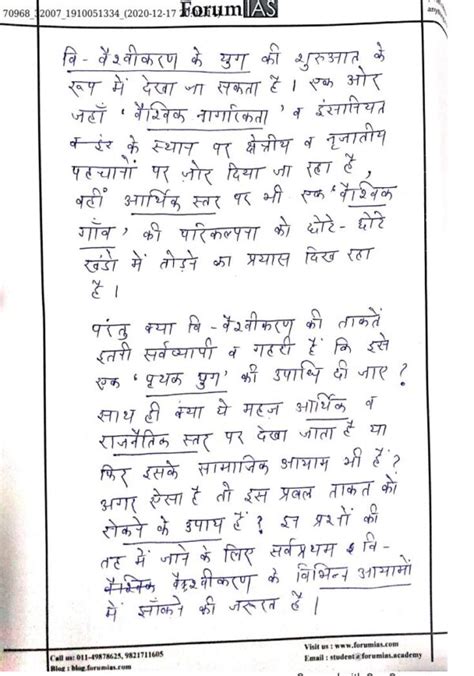 70968_32007_1910051334_(2020-12-17
ForumIAS
वि - वैश्वीकरण के युग की शुरुआत के
रूप में देखा जा सकता है। एक ओर
जहाँ 'वैश्विक नागरिकता' व इंसानियत
के स्थान पर क्षेत्रीय व नृजातीय
पहचानों पर ज़ोर दिया जा रहा है,
वहीं आर्थिक स्तर पर भी एक 'वैश्विक
गाँव' की परिकल्पना को छोटे - छोटे
खंडो में तोड़ने का प्रयास दिख रहा
है।
परंतु क्या वि - वैश्वीकरण की ताकतें
इतनी सर्वव्यापी व गहरी हैं कि इसे
एक 'पृथक युग' की उपाधि दी जाए?
साथ ही क्या ये महज़ आर्थिक व
राजनैतिक स्तर पर देखा जाता है या
फिर इसके सामाजिक आयाम भी हैं?
अगर ऐसा है तो इस प्रबल ताकत को
रोकने के उपाय हैं? इन प्रश्नों की
तह में जाने के लिए सर्वप्रथम वि -
वैश्वीकरण के विभिन्न आयामों
में झाँकने की जरूरत है।
Call us: 011-49878625, 9821711605
Blog : blog.forumias.com
Visit us : www.forumias.com
Email : student@forumias.academy